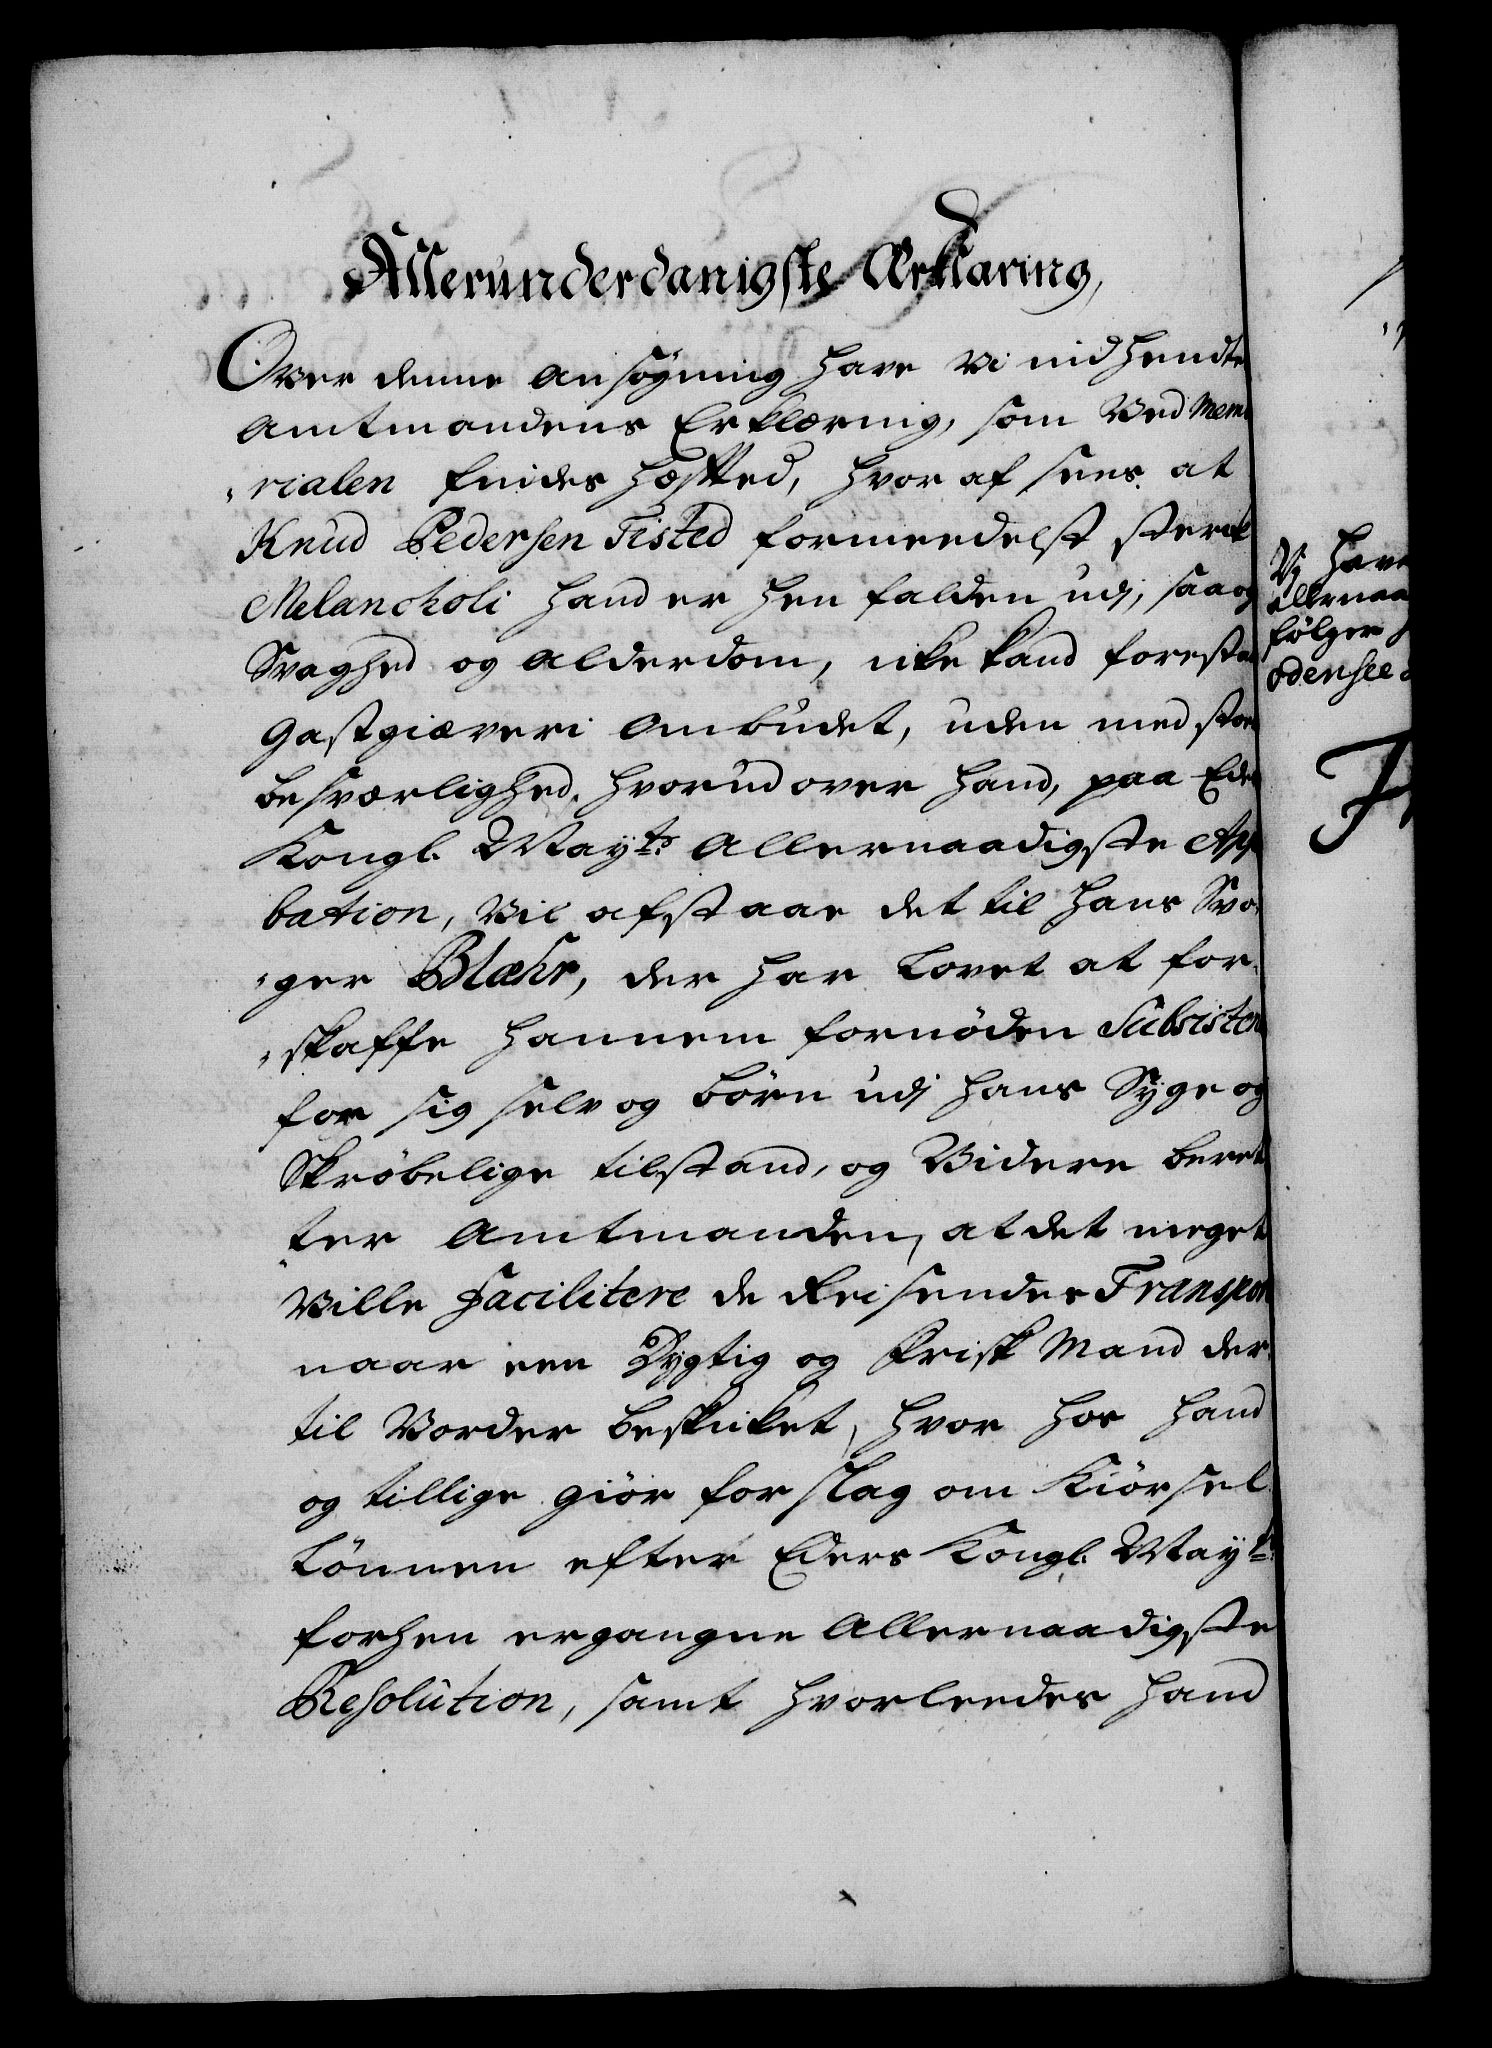 Allerunderdanigste Erklaring,
Over denne ansøgning have Vi indhendte
Amtmandens Erklæring, som Ved Memo
rialen findes hæfted, hvor af sees at
Knud Pedersen Tisted formeedelst sterk
Melancholi hand er hen falden udj, saa og
Svaghed og Alderdom, icke kand forestaa
Gastgiæveri Ombudet, uden med stor
besværlighed. hvorudover hand, paa Eders
Kongl. Mayts Allernaadigste App
bation, Vil afstaae det til hans Svo
ger Blæhr, der har Lovet at for
skaffe hannem fornøden Subsisten
for sig selv og børn udj hans Syge og
Skrøbelige tilstand, og Videre beret
ter Amtmanden, at det meget
Ville Facilitere de Reisendes Transport
naar een Dygtig og frisk Mand der
til Vorder beskicket, hvor hos hand
og tillige giør forslag om Kiørsel
Lønnen efter Eders Kongl. Mayts
forhen ergangne Allernaadigste
Resolution, samt hvorleedes hand
Vj have
allernaa
følger
Odensee